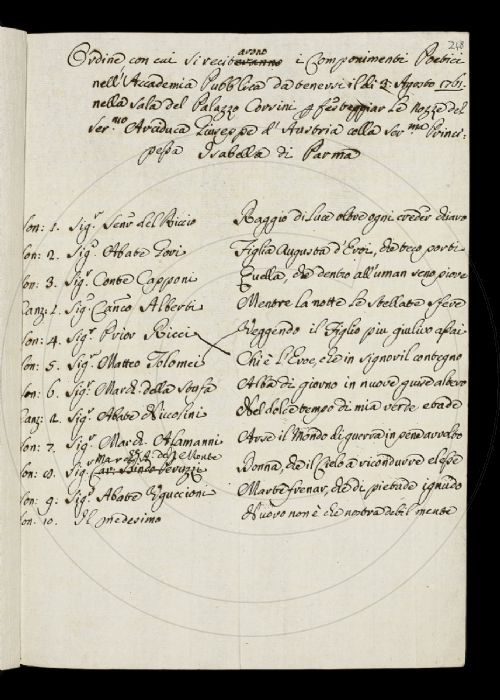 248
Ordine con cui si reciteranno arono i Componimenti Poetici
nell' Accademia Pubblica da tenersi il dì 3. Agosto 1761.
nella Sala del Palazzo Corsini p festeggiar le Nozze del
Ser.mo Arciduca Giuseppe d' Austria colla Ser.ma Princi-
pessa Isabella di Parma
Son: 1. Sig.r Sen.r del Riccio Raggio di luce oltre ogni creder chiaro
Son: 2. Sig.r Abate Gori Figlia Augusta d' Eroi, che teco porti
Son: 3. Sig.r Conte Capponi Quella, che dentro all' uman seno piove
Canz: 1. Sig.r Can.co Alberti Mentre la notte le stellate sfere
Son: 4. Sig.r Prior Ricci Veggendo il Figlio più giulivo assai
Son: 5. Sig.r Matteo Tolomei Chi è l' Eroe, che in signoril contegno
Son: 6. Sig.r March. della Stufa Alba di giorno in nuove guise albero
Canz: 2. Sig.r Abate Niccolini Nel dolce tempo di mia verde etade
Son: 7. Sig.r March. Alamanni Arse il Mondo di guerra in pene avvolto
March. del Monte
Son: 8. Sig.r Cav. Peruzzi Donna, che il Cielo a ricondurre elesse
Son: 9. Sig.r Abate Uguccioni Marte frenar, che di pietade ignudo
Son: 10. Il medesimo Nuovo non è che nostra debil mente